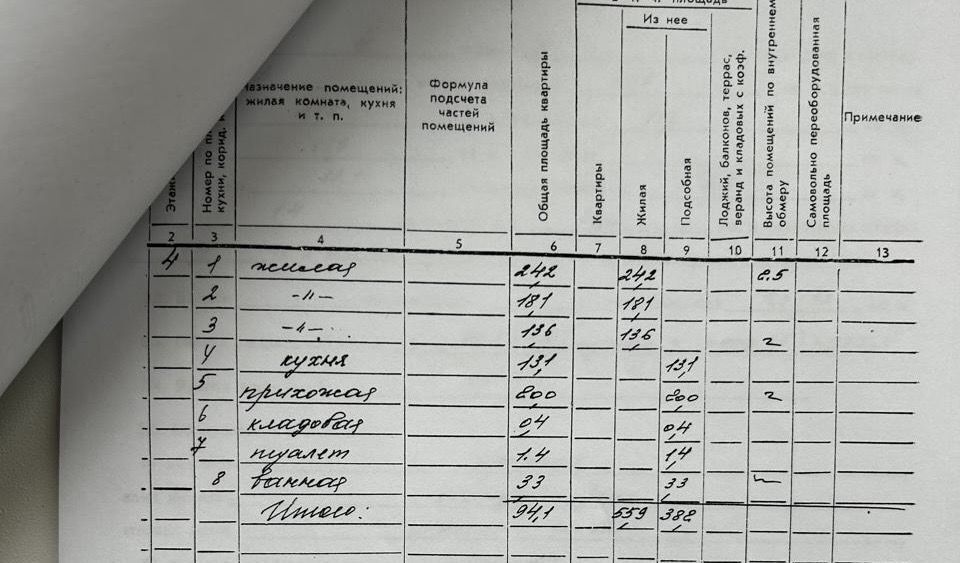 Из нее
Назначение помещений:
жилая комната, кухня
и т. п.
Формула
подсчета
частей
помещений
Общая площадь квартиры
Квартиры
Жилая
Подсобная
Лоджий, балконов, террас,
веранд и кладовых с коэф.
Высота помещений по внутреннему
обмеру
Самовольно переоборудованная
площадь
Примечание
2 3 4 5 6 7 8 9 10 11 12 13
4 1 жилая 24,2 24,2 2.5
2 -"- 18,1 18,1
3 -"- 13,6 13,6
4 кухня 13,1 13,1
5 прихожая
6 кладовая 0,4 0,4
7 туалет 1.4 1,4
8 ванная 3,3 3,3
Итого: 94,1 55,9 38,2